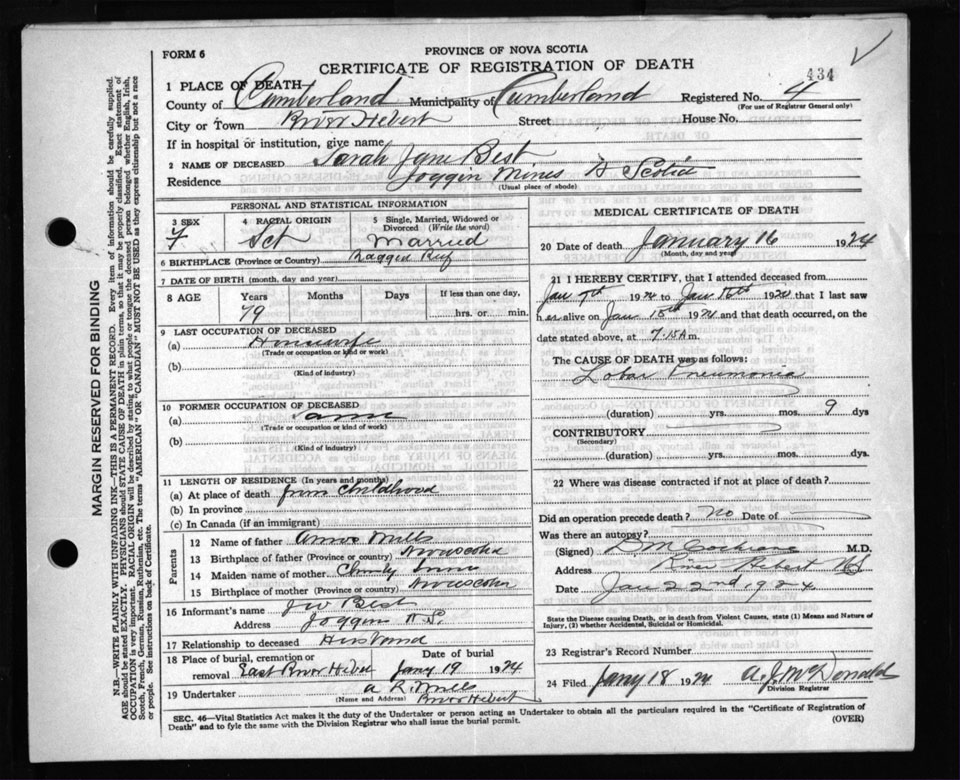 FORM 6
PROVINCE OF NOVA SCOTIA
CERTIFICATE OF REGISTRATION OF DEATH
434
1 PLACE OF DEATH—
County of Cumberland Municipality of Cumberland Registered No. 4
(For use of Registrar General only)
City or Town River Hebert Street House No.
If in hospital or institution, give name
2 NAME OF DECEASED Sarah Jane Best
Residence Joggin Mines N Scotia
(Usual place of abode)
PERSONAL AND STATISTICAL INFORMATION
3 SEX 4 RACIAL ORIGIN 5 Single, Married, Widowed or Divorced (Write the word)
F Sct Married
6 BIRTHPLACE (Province or Country) Ragged Reef
7 DATE OF BIRTH (month, day and year)
8 AGE Years Months Days If less than one day,
79 hrs. or min.
9 LAST OCCUPATION OF DECEASED
(a) Housewife
(Trade or occupation or kind of work)
(b)
(Kind of industry)
10 FORMER OCCUPATION OF DECEASED
(a) Same
(Trade or occupation or kind of work)
(b)
(Kind of industry)
11 LENGTH OF RESIDENCE (In years and months)
(a) At place of death from Childhood
(b) In province
(c) In Canada (if an immigrant)
Parents
12 Name of father Amos Mills
13 Birthplace of father (Province or country) Novascotia
14 Maiden name of mother Christy
15 Birthplace of mother (Province or country) Novascotia
16 Informant's name J W Best
Address Joggin N.S.
17 Relationship to deceased Husband
18 Place of burial, cremation or removal East River Hebert Date of burial Jany 19 1924
19 Undertaker A R Mills
(Name and Address) River Hebert
MEDICAL CERTIFICATE OF DEATH
20 Date of death January 16 1924
(Month, day and year)
21 I HEREBY CERTIFY, that I attended deceased from
Jan 7th 1924 to Jan 15th 1924 that I last saw
her alive on Jan 15th 1924 and that death occurred, on the
date stated above, at 7.15A m.
The CAUSE OF DEATH was as follows:
Lobar Pneumonia
(duration) yrs. mos. 9 dys
CONTRIBUTORY
(Secondary)
(duration) yrs. mos. dys
22 Where was disease contracted if not at place of death?
Did an operation precede death? No Date of
Was there an autopsy?
(Signed) D M Cochrane M.D.
Address River Hebert NS
Date Jan 22nd, 1924
State the Disease causing Death, or in death from Violent Causes, state (1) Means and Nature of Injury, (2) whether Accidental, Suicidal or Homicidal.
23 Registrar's Record Number
24 Filed Jany 18 1924 A. J. McDonald
Division Registrar
SEC. 46—Vital Statistics Act makes it the duty of the Undertaker or person acting as Undertaker to obtain all the particulars required in the "Certificate of Registration of
Death" and to fyle the same with the Division Registrar who shall issue the burial permit.
(OVER)
MARGIN RESERVED FOR BINDING
N.B.—WRITE PLAINLY WITH UNFADING INK—THIS IS A PERMANENT RECORD. Every item of information should be carefully supplied.
AGE should be stated EXACTLY. PHYSICIANS should STATE CAUSE OF DEATH in plain terms, so that it may be properly classified. Exact statement of
OCCUPATION is very important. RACIAL ORIGIN will be described by stating to what people or tongue the deceased person belonged whether English, Irish,
Scotch, French, German, Russian, Ruthenian, etc. The terms "AMERICAN" OR "CANADIAN" MUST NOT BE USED as they express citizenship but not a race
or people. See instructions on back of Certificate.